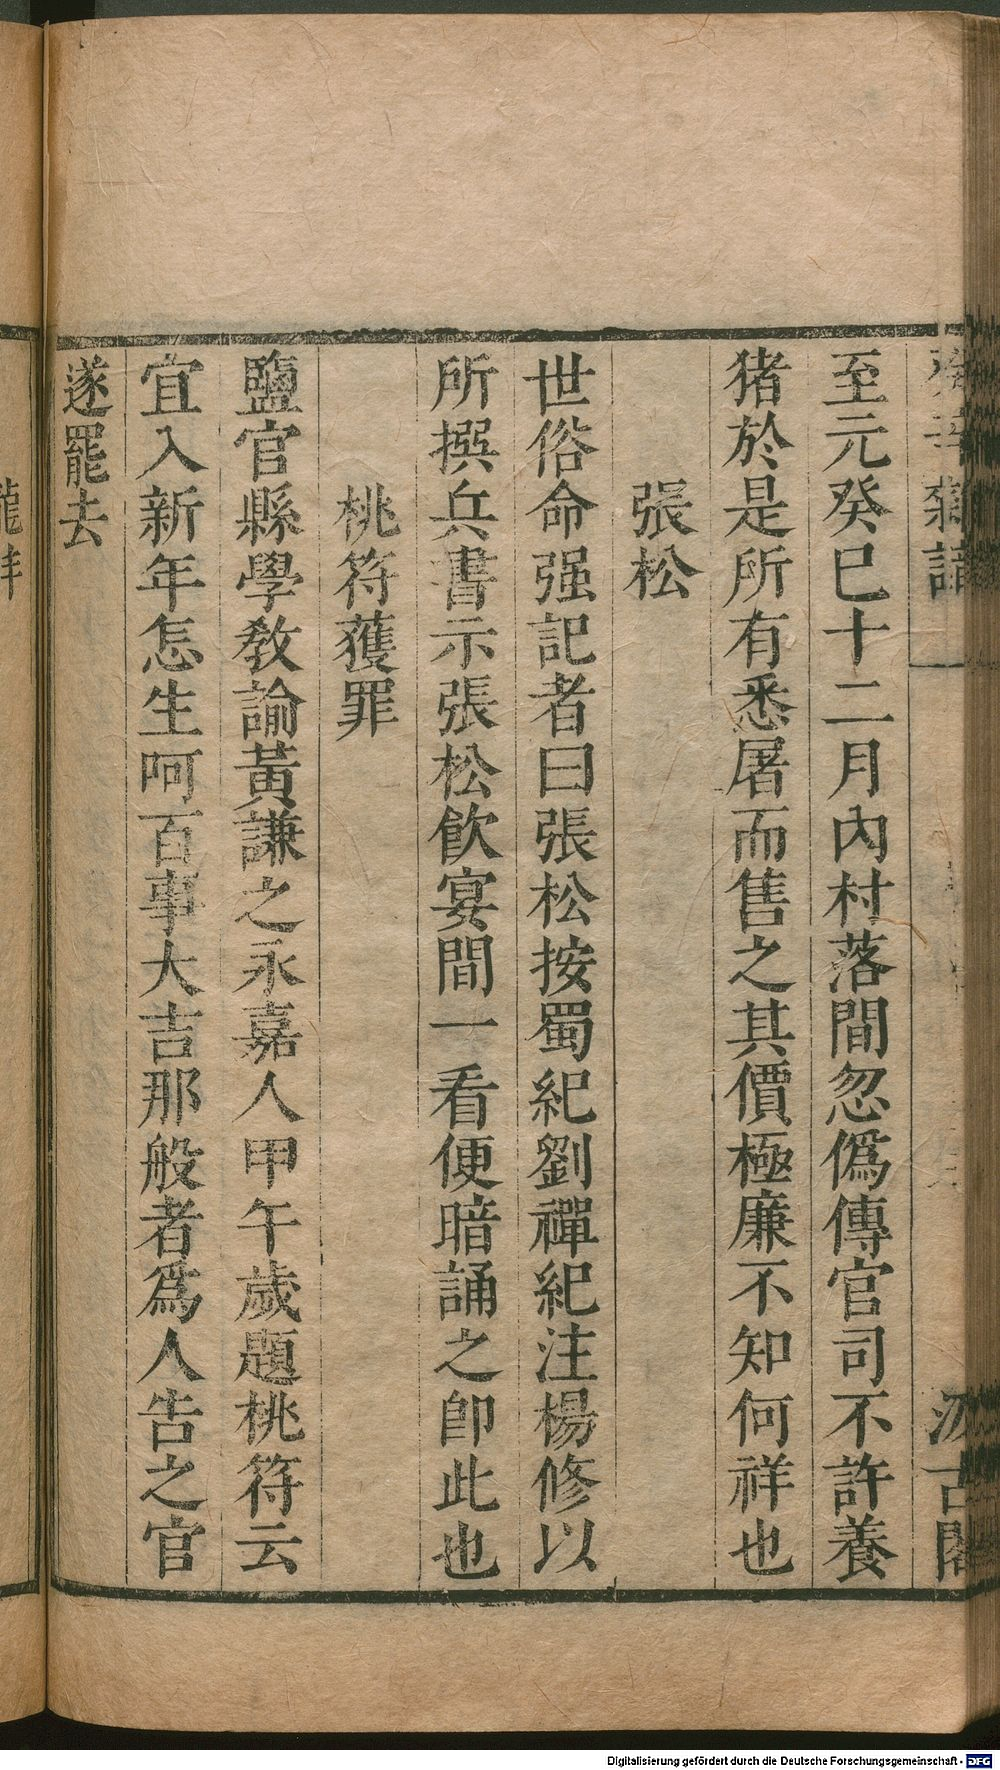 癸辛雜識
汲古閣
至元癸巳十二月內村落間忽僞傳官司不許養
猪於是所有悉屠而售之其價極廉不知何祥也
張松
世俗命强記者曰張松按蜀紀劉禪紀注楊修以
所撰兵書示張松飮宴間一看便暗誦之卽此也
桃符獲罪
鹽官縣學敎諭黃謙之永嘉人甲午歲題桃符云
宜入新年怎生呵百事大吉那般者爲人告之官
遂罷去
Digitalisierung gefördert durch die Deutsche Forschungsgemeinschaft - DFG